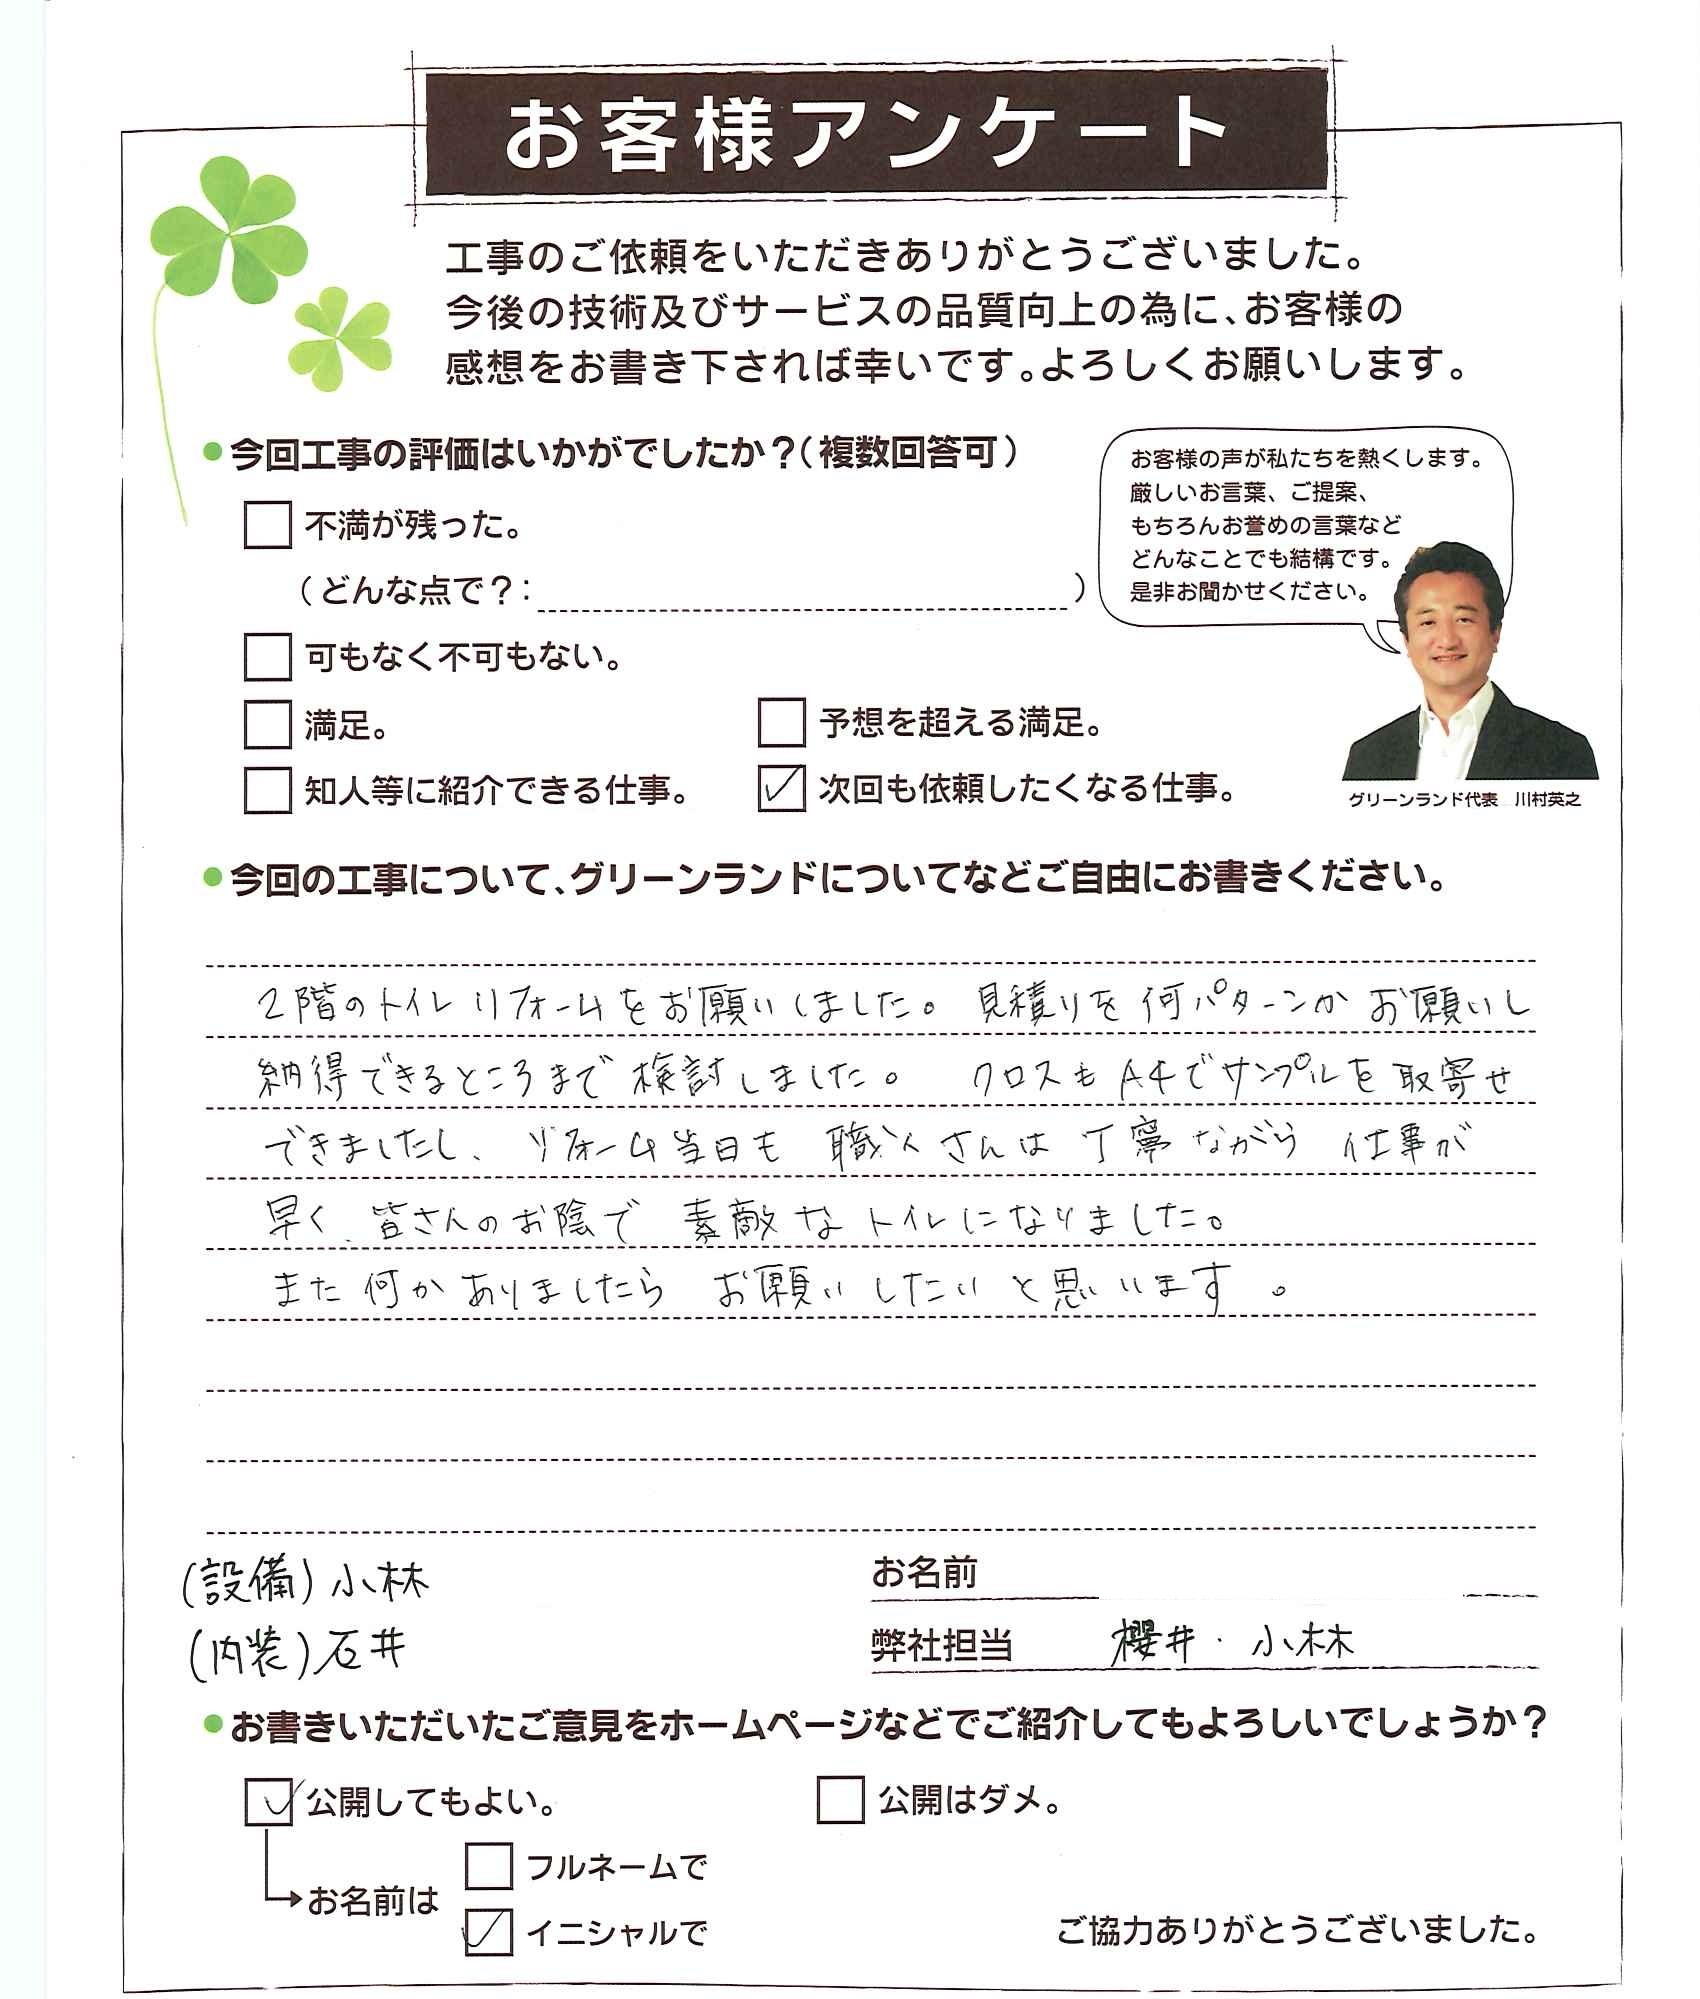 お客様アンケート
工事のご依頼をいただきありがとうございました。
今後の技術及びサービスの品質向上の為に、お客様の
感想をお書き下されば幸いです。よろしくお願いします。
●今回工事の評価はいかがでしたか？(複数回答可)
お客様の声が私たちを熱くします。
厳しいお言葉、ご提案、
もちろんお誉めの言葉など
どんなことでも結構です。
是非お聞かせください。
不満が残った。
(どんな点で？: )
可もなく不可もない。
満足。
予想を超える満足。
知人等に紹介できる仕事。
次回も依頼したくなる仕事。
グリーンランド代表 川村英之
●今回の工事について、グリーンランドについてなどご自由にお書きください。
2階のトイレリフォームをお願いしました。見積りを何パターンかお願いし
納得できるところまで検討しました。 クロスもA4でサンプルを取寄せ
できましたし、リフォーム当日も 職人さんは丁寧ながら 仕事が
早く、皆さんのお陰で 素敵なトイレになりました。
また何かありましたら お願いしたいと思います。
(設備)小林
お名前
(内装)石井
弊社担当 櫻井・小林
●お書きいただいたご意見をホームページなどでご紹介してもよろしいでしょうか？
公開してもよい。
公開はダメ。
フルネームで
お名前は
イニシャルで
ご協力ありがとうございました。